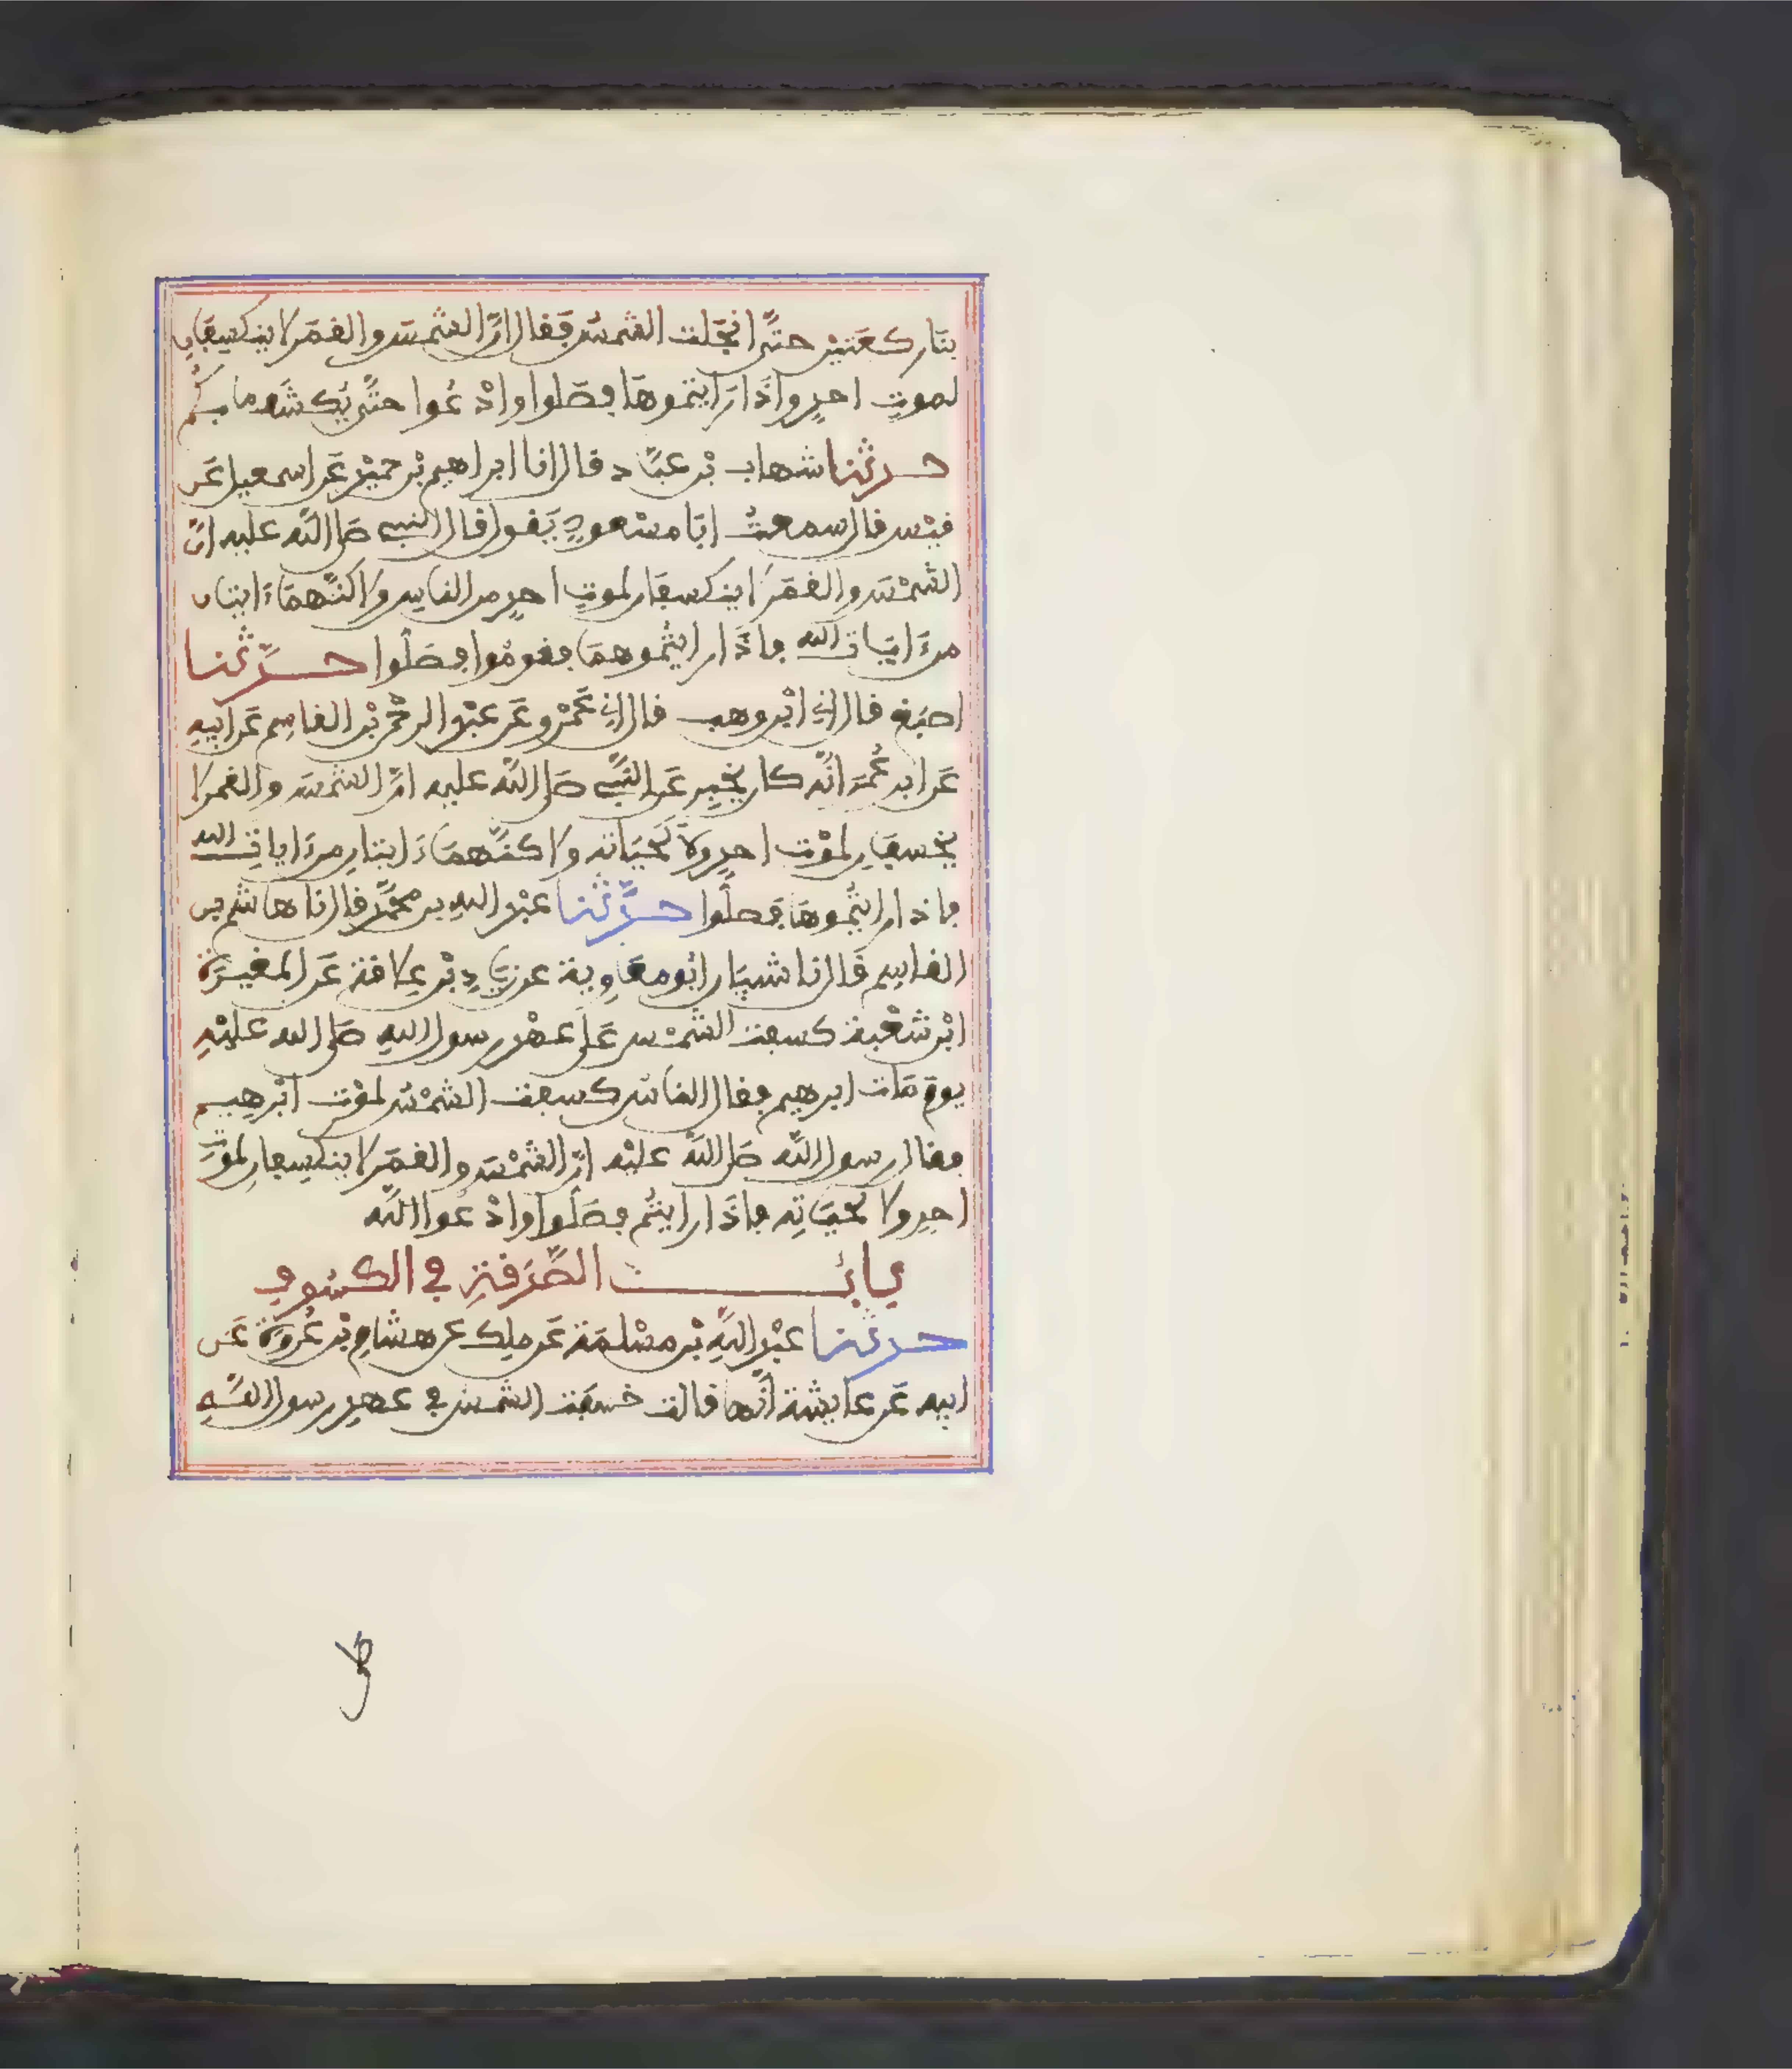 بنا ركعتين حتى انجلت الشمس فقال ان الشمس والقمر لا ينكسفان
لموت احد واذا رايتموها فصلوا وادعوا حتى يكشف ما بكم
حدثنا شهاب بن عباد قال انا ابراهيم بن حميد عن اسمعيل عن
قيس قال سمعت ابا مسعود يقول قال النبي صلى الله عليه ان
الشمس والقمر لا ينكسفان لموت احد من الناس ولاكنهما ءايتان
من ءايات الله فاذا رايتموهما فقوموا فصلوا حدثنا
اصبغ قال ني ابن وهب قال ني عمرو عن عبد الرحمن بن القاسم عن ابيه
عن ابن عمر انه كان يخبر عن النبي صلى الله عليه ان الشمس والقمر لا
يخسفان لموت احد ولا لحياته ولاكنهما ءايتان من ءايات الله
فاذا رايتموها فصلوا حدثنا عبد الله بن محمد قال نا هاشم بن
القاسم قال نا شيبان ابو معاوية عن زياد بن علاقة عن المغيرة
ابن شعبة كسفت الشمس على عهد رسول الله صلى الله عليه
يوم مات ابرهيم فقال الناس كسفت الشمس لموت ابرهيم
فقال رسول الله صلى الله عليه ان الشمس والقمر لا ينكسفان لموت
احد ولا لحياته فاذا رايتم فصلوا وادعوا الله
باب الصدقة في الكسوف
حدثنا عبد الله بن مسلمة عن ملك عن هشام بن عروة عن
ابيه عن عايشة انها قالت خسفت الشمس في عهد رسول الله